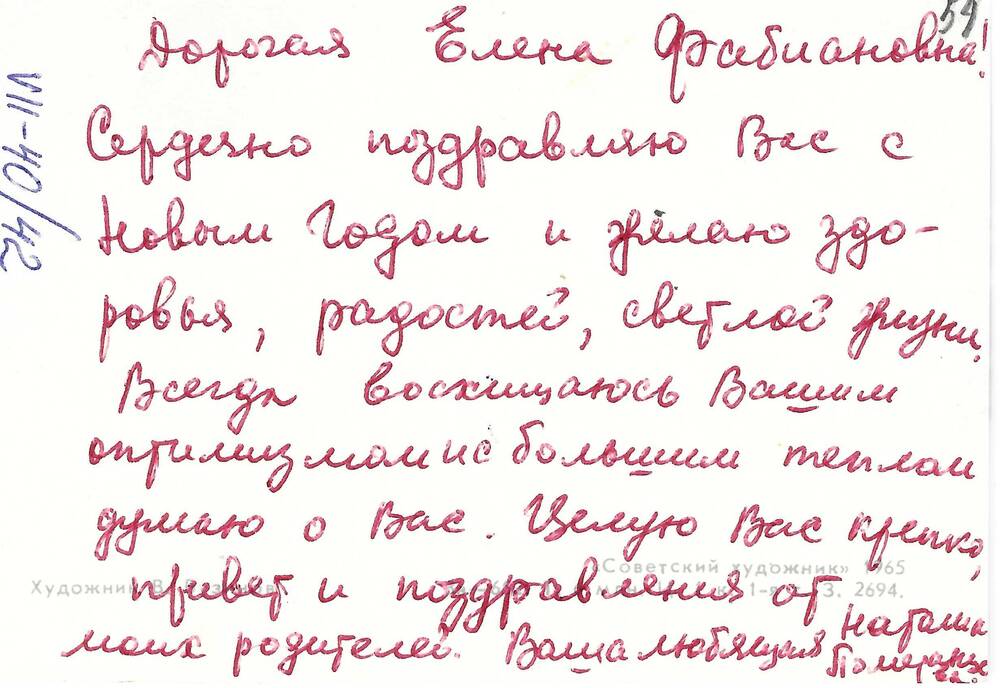 54
VII-40/42
Дорогая Елена Фабиановна!
Сердечно поздравляю Вас с
Новым Годом и желаю здо-
ровья, радостей, светлой жизни.
Всегда восхищаюсь Вашим
оптимизмом и с большим теплом
думаю о Вас. Целую Вас крепко,
«Советский художник» 1965
Художник В.
1-я З. 2694.
привет и поздравления от
моих родителей. Ваша любящая Наташа